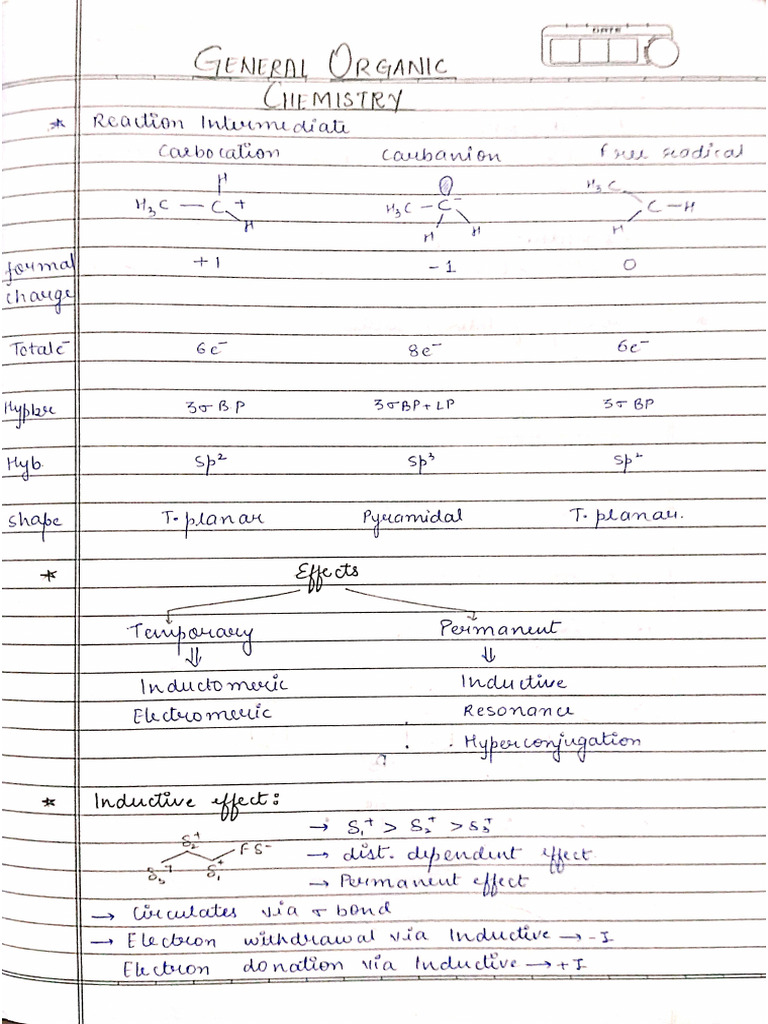 DATE
GENERAL ORGANIC
CHEMISTRY
* Reaction Intermediate
Carbocation Carbanion Free radical
H
H₃C — C +
H
H₃C — C⁻
H H
H₃C
C — H
H
formal charge +1 -1 0
Total e⁻ 6e⁻ 8e⁻ 6e⁻
3σ BP 3σBP + LP 3σ BP
Hyb. sp² sp³ sp²
Shape T. planar Pyramidal T. planar.
* Effects
Temporary Permanent
⇓ ⇓
Inductomeric Inductive
Electromeric Resonance
Hyperconjugation
* Inductive effect:
→ δ₁⁺ > δ₂⁺ > δ₃⁺
δ₃⁺ δ₂⁺ δ₁⁺ F δ⁻
→ dist. dependent effect
→ Permanent effect
→ Circulates via σ bond
→ Electron withdrawal via Inductive → -I
Electron donation via Inductive → +I